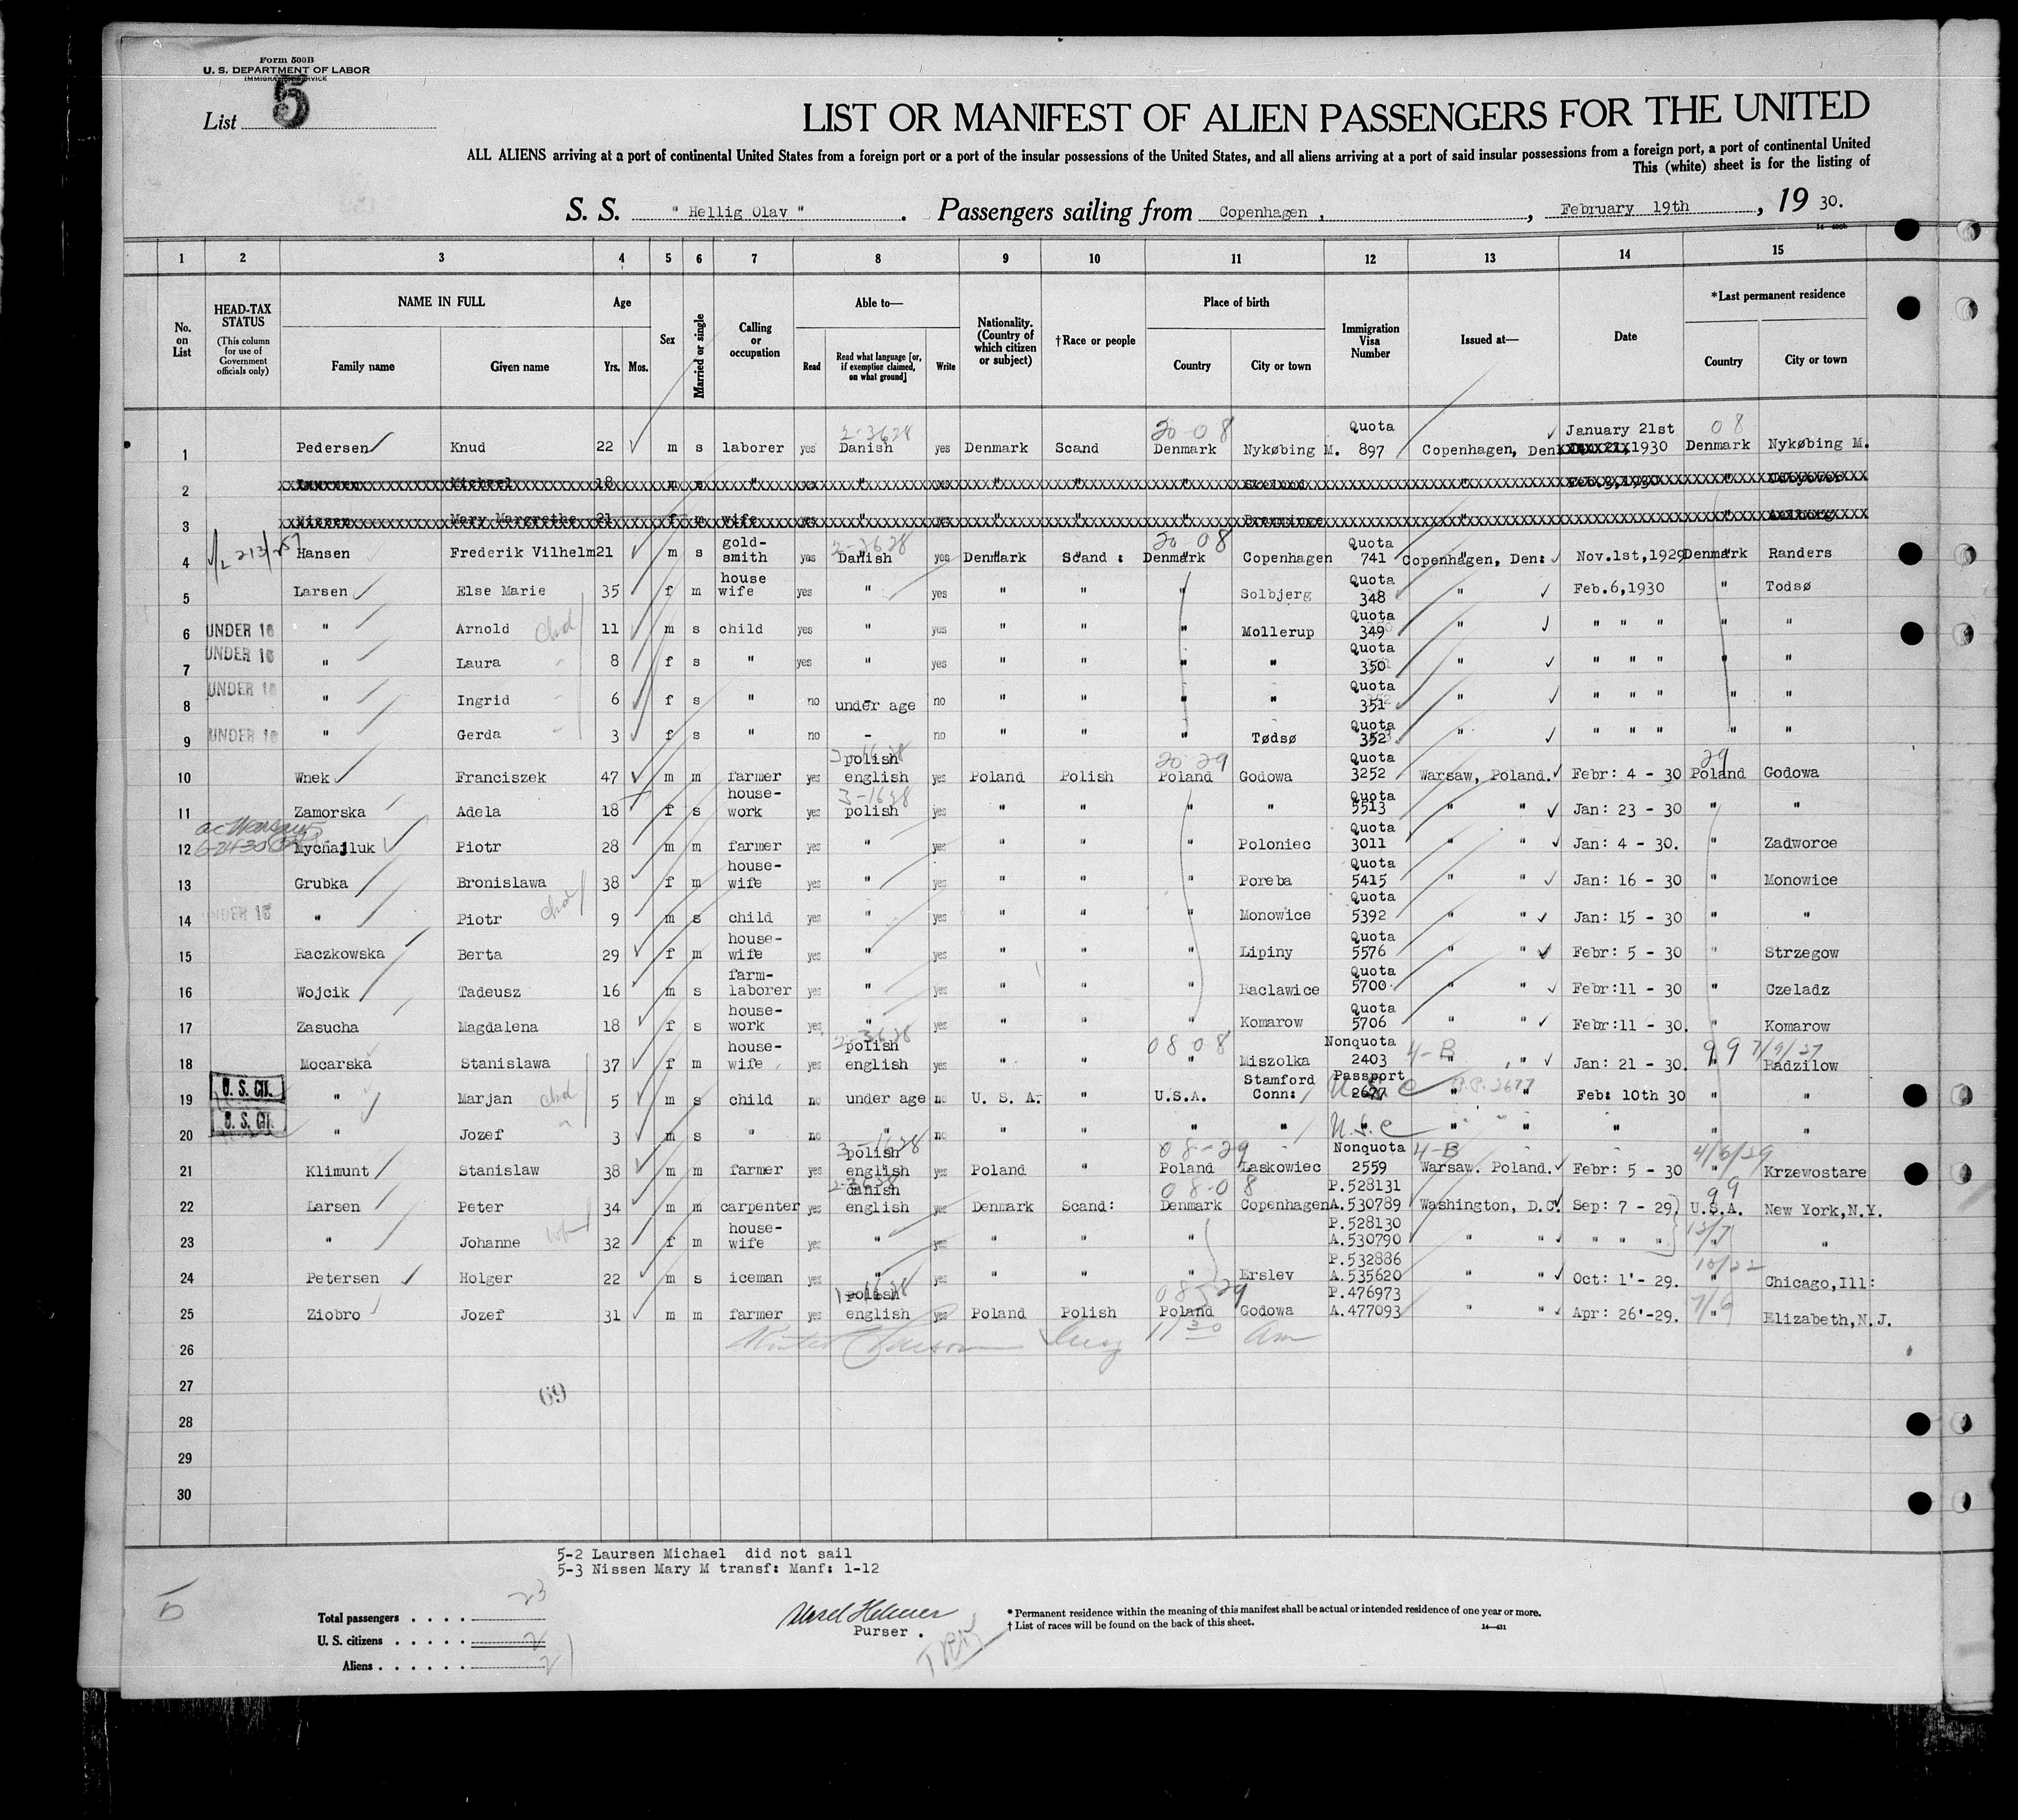 Form 500B
U. S. DEPARTMENT OF LABOR
IMMIGRATION SERVICE
List 5
LIST OR MANIFEST OF ALIEN PASSENGERS FOR THE UNITED
ALL ALIENS arriving at a port of continental United States from a foreign port or a port of the insular possessions of the United States, and all aliens arriving at a port of said insular possessions from a foreign port, a port of continental United
This (white) sheet is for the listing of
S. S. " Hellig Olav " . Passengers sailing from Copenhagen , , February 19th , 19 30.
1 2 3 4 5 6 7 8 9 10 11 12 13 14 15
No. on List
HEAD-TAX STATUS (This column for use of Government officials only)
NAME IN FULL
Family name Given name
Age
Yrs. Mos.
Sex
Married or single
Calling or occupation
Able to—
Read Read what language [or, if exemption claimed, on what ground] Write
Nationality. (Country of which citizen or subject)
†Race or people
Place of birth
Country City or town
Immigration Visa Number
Issued at—
Date
*Last permanent residence
Country City or town
1 Pedersen Knud 22 m s laborer yes Danish 2-3628 yes Denmark Scand 20-08 Denmark Nykøbing M. Quota 897 Copenhagen, Den January 21st 1930 08 Denmark Nykøbing M.
2 Laursen Michael 18 m s " " " " " Feb.3,1930 "
3 Nissen Mary Margrethe 21 f m wife " " " " "
4 Hansen Frederik Vilhelm 21 m s gold-smith yes Danish 2-3628 yes Denmark Scand : 20-08 Denmark Copenhagen Quota 741 Copenhagen, Den: Nov.1st,1929 Denmark Randers
5 Larsen Else Marie 35 f m house wife yes " yes " " " Solbjerg Quota 348 " Feb.6,1930 " Todsø
6 UNDER 16 " Arnold chd 11 m s child yes " yes " " " Mollerup Quota 349 " " " " " "
7 UNDER 16 " Laura 8 f s " yes " yes " " " " Quota 350 " " " " " "
8 UNDER 16 " Ingrid 6 f s " no under age no " " " " Quota 351 " " " " " "
9 UNDER 16 " Gerda 3 f s " no - no " " " Tødsø Quota 352 " " " " " "
10 Wnek Franciszek 47 m m farmer yes polish english yes Poland Polish 20-29 Poland Godowa Quota 3252 Warsaw, Poland. Febr: 4 - 30 29 Poland Godowa
11 Zamorska Adela 18 f s house-work yes 3-1628 polish yes " " " " Quota 5513 " " Jan: 23 - 30 " "
12 Mychajluk Piotr 28 m m farmer yes " yes " " " Poloniec Quota 3011 " " Jan: 4 - 30. " Zadworce
13 Grubka Bronislawa 38 f m house-wife yes " yes " " " Poreba Quota 5415 " " Jan: 16 - 30 " Monowice
14 UNDER 16 " Piotr chd 9 m s child yes " yes " " " Monowice Quota 5392 " " Jan: 15 - 30 " "
15 Raczkowska Berta 29 f m house-wife yes " yes " " " Lipiny Quota 5576 " " Febr: 5 - 30 " Strzegow
16 Wojcik Tadeusz 16 m s farm-laborer yes " yes " " " Raclawice Quota 5700 " " Febr:11 - 30 " Czeladz
17 Zasucha Magdalena 18 f s house-work yes " yes " " " Komarow Quota 5706 " " Febr:11 - 30. " Komarow
18 Mocarska Stanislawa 37 f m house-wife yes 2-3628 polish english yes " " 08 08 " Miszolka Nonquota 2403 4-B " " Jan: 21 - 30. 99 7/9/27 " Radzilow
19 U. S. CIT. " Marjan chd 5 m s child no under age no U. S. A. " U.S.A. Stamford Conn: Passport 2677 U.S.C P.P.2677 " " Feb: 10th 30 " "
20 U. S. CIT. " Jozef 3 m s " no " no " " " " " U.S.C " " " " "
21 Klimunt Stanislaw 38 m m farmer yes 3-1628 polish english yes Poland " 08-29 Poland Laskowiec Nonquota 2559 4-B Warsaw. Poland. Febr: 5 - 30 4/6/29 " Krzewostare
22 Larsen Peter 34 m m carpenter yes 2-3638 danish english yes Denmark Scand: 08-08 Denmark Copenhagen P.528131 A.530789 Washington, D.C. Sep: 7 - 29 99 U.S.A. New York,N.Y.
23 " Johanne 32 f m house-wife yes " yes " " " P.528130 A.530790 " " " " " " "
24 Petersen Holger 22 m s iceman yes " yes " " " Erslev P.532886 A.535620 " " Oct: 1'- 29. 10/22 " Chicago,Ill:
25 Ziobro Jozef 31 m m farmer yes polish english yes Poland Polish Poland Godowa P.476973 A.477093 " " Apr: 26'-29. " Elizabeth,N.J.
26
27 69
28
29
30
5-2 Laursen Michael did not sail
5-3 Nissen Mary M transf: Manf: 1-12
Total passengers . . . . 23
U. S. citizens . . . . . 2
Aliens . . . . . . 21
Purser .
* Permanent residence within the meaning of this manifest shall be actual or intended residence of one year or more.
† List of races will be found on the back of this sheet.